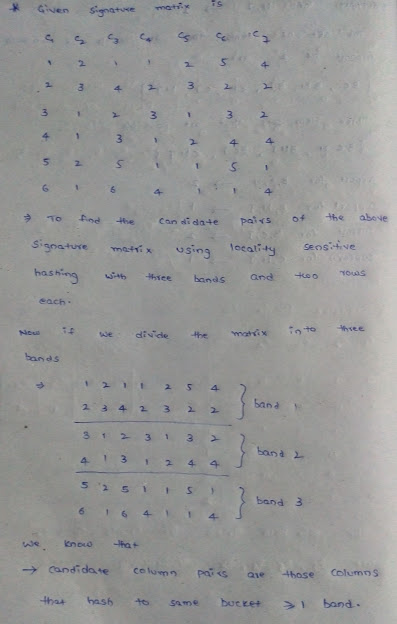 * Given signature matrix is
C1 C2 C3 C4 C5 C6 C7
1 2 1 1 2 5 4
2 3 4 2 3 2 2
3 1 2 3 1 3 2
4 1 3 1 2 4 4
5 2 5 1 1 5 1
6 1 6 4 1 1 4
⇒ To find the candidate pairs of the above
signature matrix using locality sensitive
hashing with three bands and two rows
each.
Now if we divide the matrix into three
bands
⇒ 1 2 1 1 2 5 4
2 3 4 2 3 2 2 } band 1
3 1 2 3 1 3 2
4 1 3 1 2 4 4 } band 2
5 2 5 1 1 5 1
6 1 6 4 1 1 4 } band 3
we know that
→ candidate column pairs are those columns
that hash to same bucket ≥ 1 band.